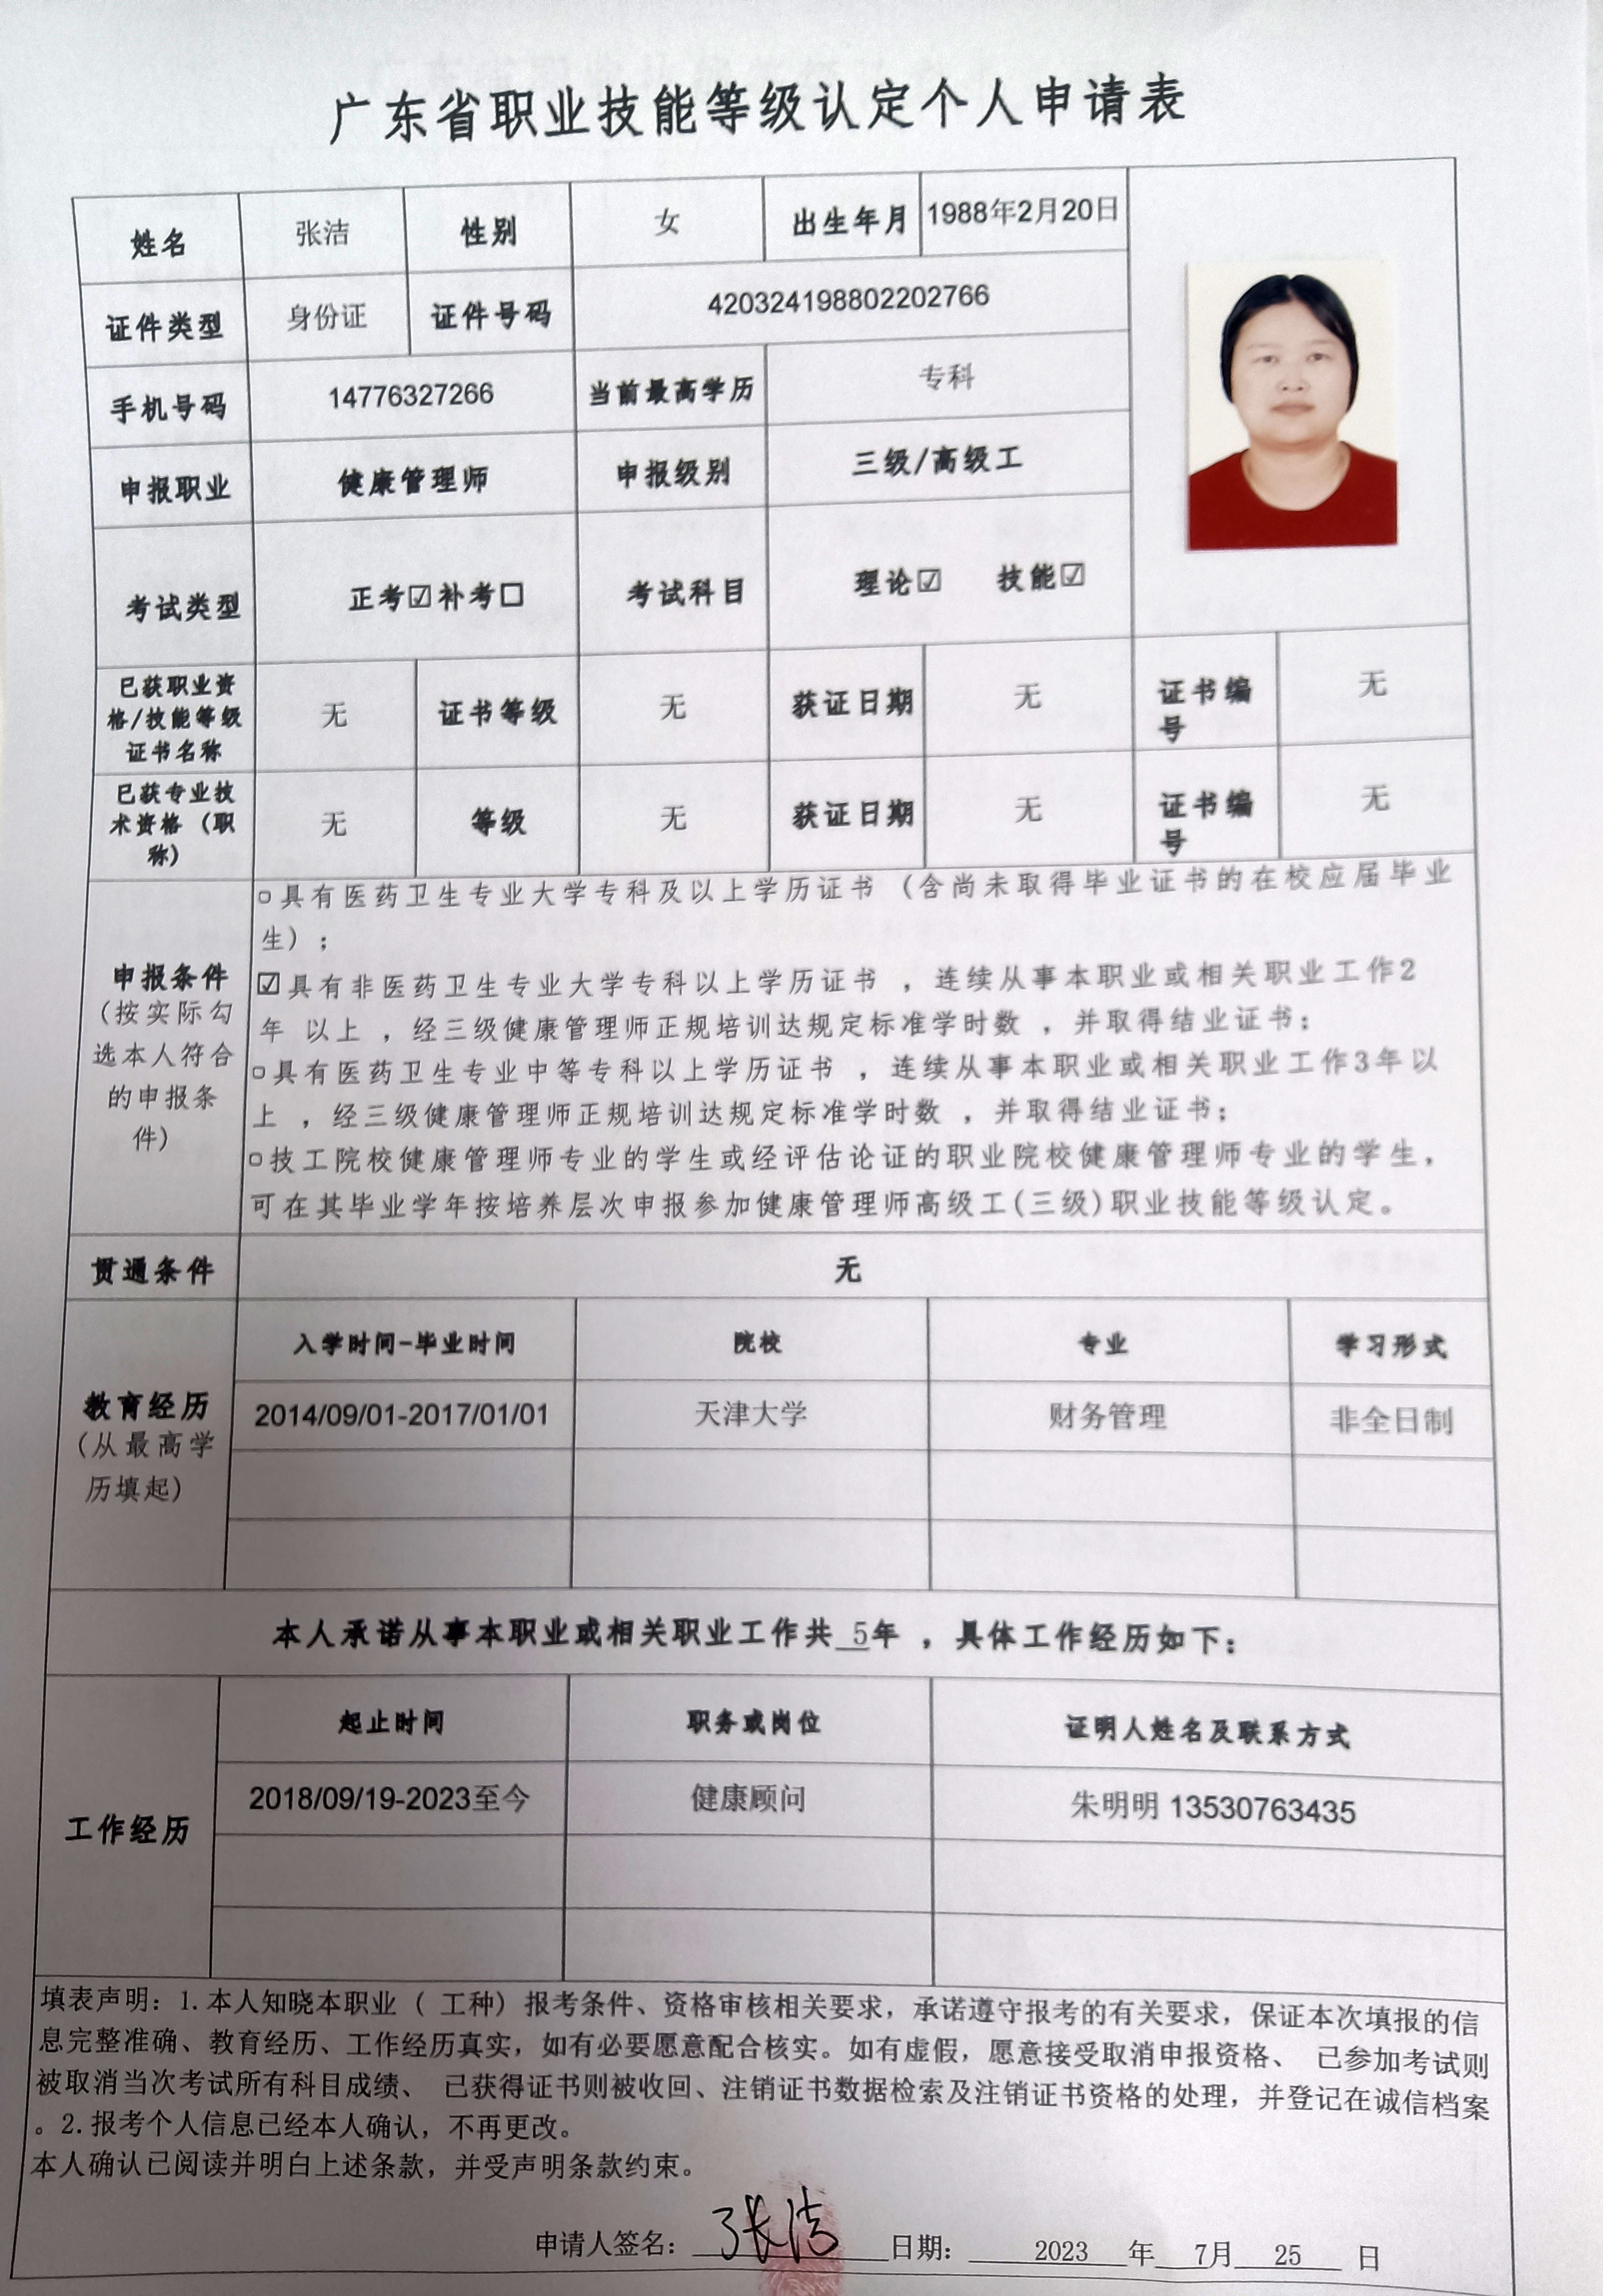 广东省职业技能等级认定个人申请表
姓名 张洁 性别 女 出生年月 1988年2月20日
证件类型 身份证 证件号码 420324198802202766
手机号码 14776327266 当前最高学历 专科
申报职业 健康管理师 申报级别 三级/高级工
考试类型 正考☑补考☐ 考试科目 理论☑ 技能☑
已获职业资
格/技能等级
证书名称
无 证书等级 无 获证日期 无 证书编
号
无
已获专业技
术资格（职
称）
无 等级 无 获证日期 无 证书编
号
无
申报条件
（按实际勾
选本人符合
的申报条
件）
□具有医药卫生专业大学专科及以上学历证书（含尚未取得毕业证书的在校应届毕业
生）；
☑具有非医药卫生专业大学专科以上学历证书，连续从事本职业或相关职业工作2
年 以上，经三级健康管理师正规培训达规定标准学时数，并取得结业证书；
□具有医药卫生专业中等专科以上学历证书，连续从事本职业或相关职业工作3年以
上，经三级健康管理师正规培训达规定标准学时数，并取得结业证书；
□技工院校健康管理师专业的学生或经评估论证的职业院校健康管理师专业的学生，
可在其毕业学年按培养层次申报参加健康管理师高级工(三级)职业技能等级认定。
贯通条件 无
教育经历
（从最高学
历填起）
入学时间-毕业时间 院校 专业 学习形式
2014/09/01-2017/01/01 天津大学 财务管理 非全日制
本人承诺从事本职业或相关职业工作共 5年，具体工作经历如下：
工作经历
起止时间 职务或岗位 证明人姓名及联系方式
2018/09/19-2023至今 健康顾问 朱明明 13530763435
填表声明：1.本人知晓本职业（ 工种）报考条件、资格审核相关要求，承诺遵守报考的有关要求，保证本次填报的信
息完整准确、教育经历、工作经历真实，如有必要愿意配合核实。如有虚假，愿意接受取消申报资格、 已参加考试则
被取消当次考试所有科目成绩、 已获得证书则被收回、注销证书数据检索及注销证书资格的处理，并登记在诚信档案
。2.报考个人信息已经本人确认，不再更改。
本人确认已阅读并明白上述条款，并受声明条款约束。
申请人签名： 张洁 日期： 2023 年 7月 25 日